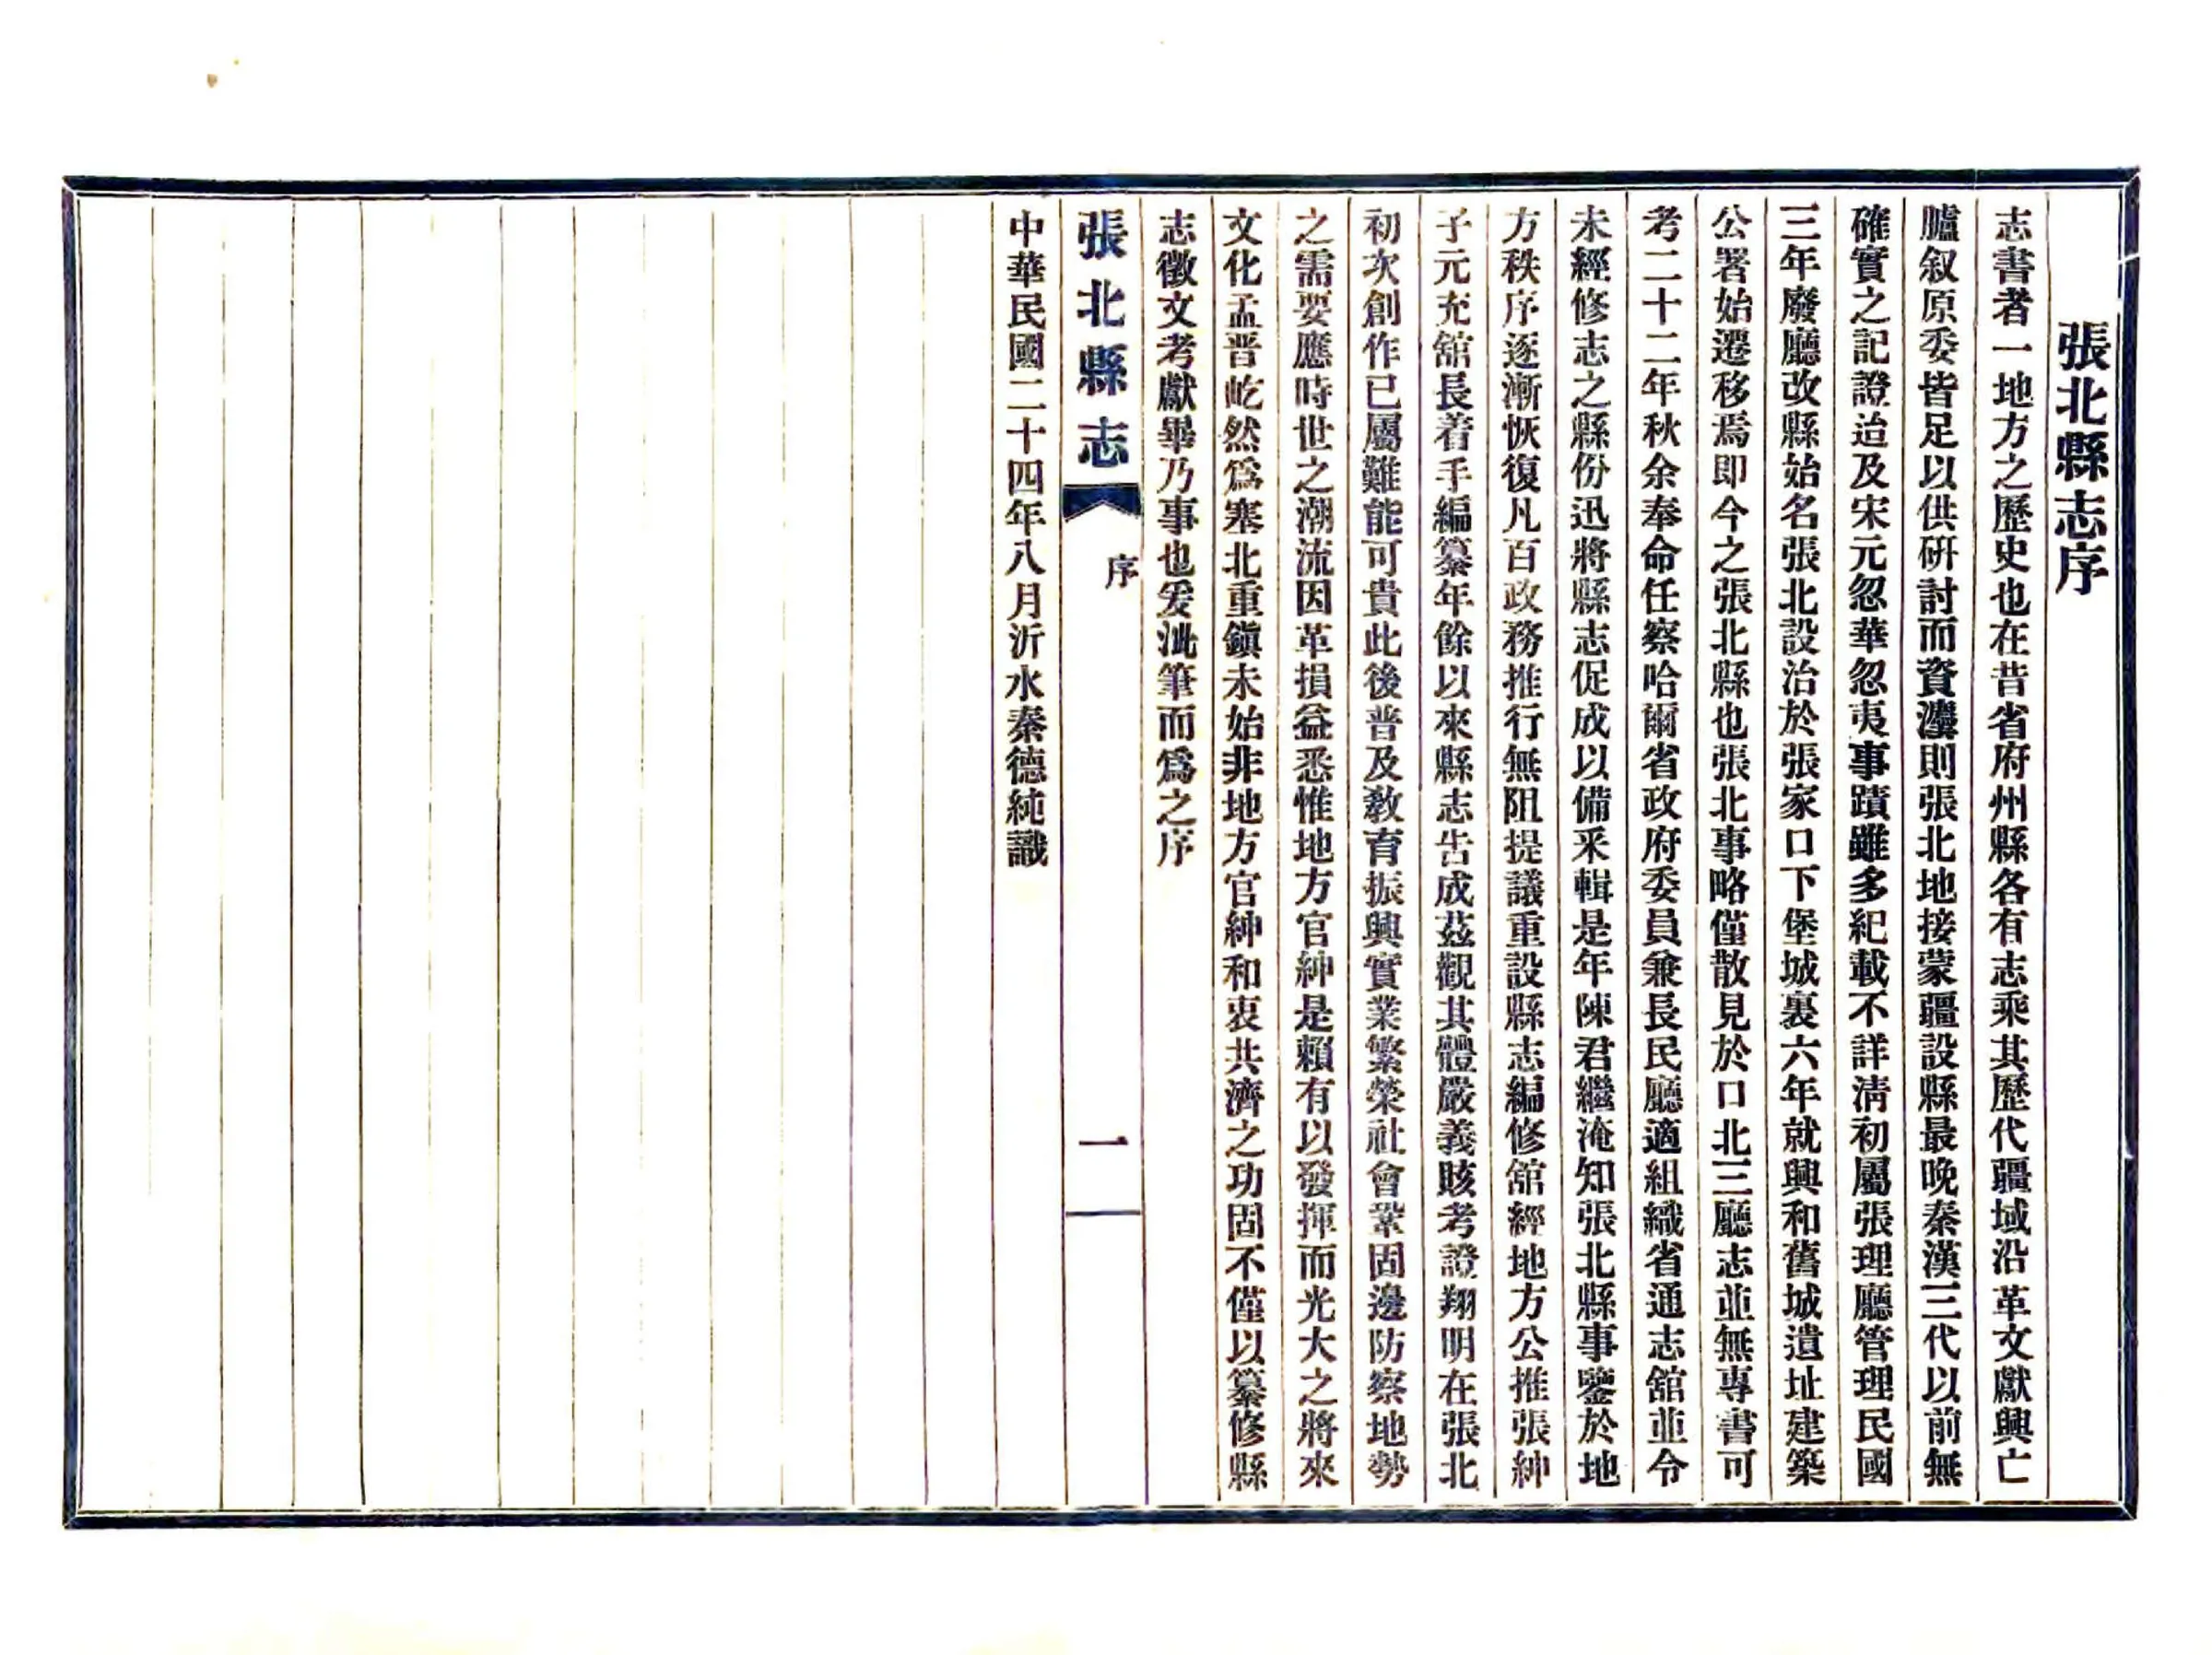 張北縣志序
志書者一地方之歷史也在昔省府州縣各有志乘其歷代疆域沿革文獻興亡
臚叙原委皆足以供研討而資瀏則張北地接蒙疆設縣最晚秦漢三代以前無
確實之記證迨及宋元忽華忽夷事蹟雖多紀載不詳淸初屬張理廳管理民國
三年廢廳改縣始名張北設治於張家口下堡城裏六年就興和舊城遺址建築
公署始遷移焉即今之張北縣也張北事略僅散見於口北三廳志並無專書可
考二十二年秋余奉命任察哈爾省政府委員兼長民廳適組織省通志舘並令
未經修志之縣份迅將縣志促成以備釆輯是年陳君繼淹知張北縣事鑒於地
方秩序逐漸恢復凡百政務推行無阻提議重設縣志編修舘經地方公推張紳
子元充舘長着手編纂年餘以來縣志吿成茲觀其體嚴義賅考證翔明在張北
初次創作已屬難能可貴此後普及教育振興實業繁榮社會鞏固邊防察地勢
之需要應時世之潮流因革損益悉惟地方官紳是賴有以發揮而光大之將來
文化孟晋屹然爲塞北重鎭未始非地方官紳和衷共濟之功固不僅以纂修縣
志徵文考獻畢乃事也爰泚筆而爲之序
張北縣志
序
一
中華民國二十四年八月沂水秦德純識